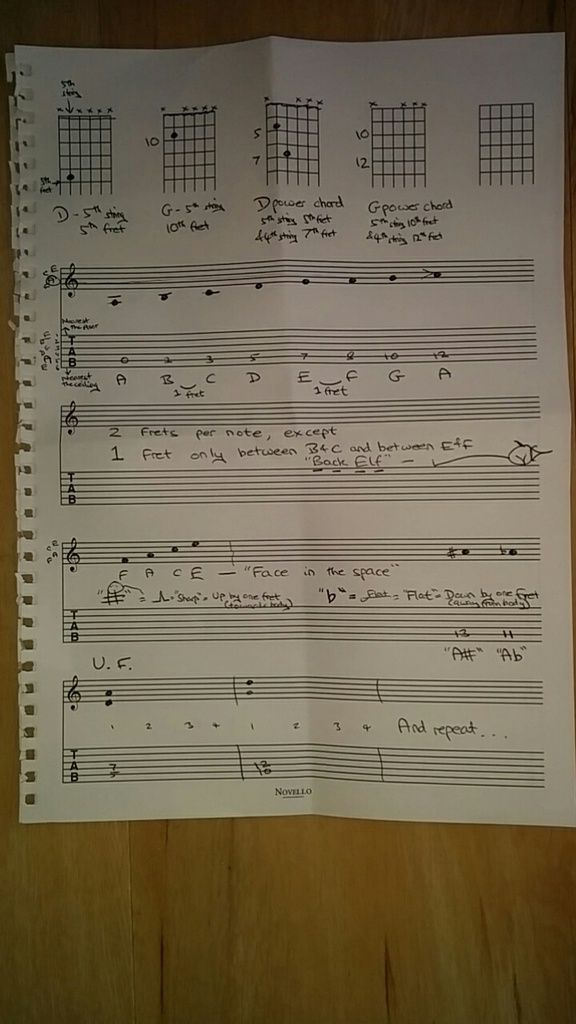 5th
string
x x x x x
x x x x x
x x x x
x x x x
10
5
7
10
12
5th
fret
D - 5th string
5th fret
G - 5th string
10th fret
D power chord
5th string 5th fret
& 4th string 7th fret
G power chord
5th string 10th fret
& 4th string 12th fret
Nearest
the floor
T
A
B
0 2 3 5 7 8 10 12
Nearest
the ceiling
A B C D E F G A
1 fret 1 fret
2 frets per note, except
1 fret only between B&C and between E&F
"Back Elf"
T
A
B
F A C E — "Face in the space"
"#" = "Sharp" = Up by one fret
(towards body)
"b" = Flat = "Flat" = Down by one fret
(away from body)
T
A
B
13 11
"A#" "Ab"
U.F.
1 2 3 4 1 2 3 4 And repeat...
T
A
B
7
5
12
10
NOVELLO